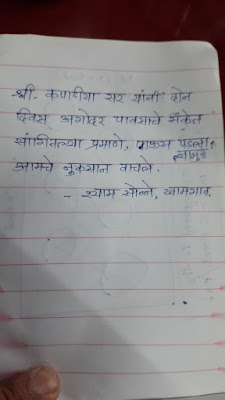 श्री. कपाडीया सर यांनी दोन
दिवस अगोदर पावसाचे संकेत
सांगितल्या प्रमाणे, पाऊस पडला।
त्यामुळे
आमचे नुकसान वाचले.
- श्याम सोन्ने, खामगाव.